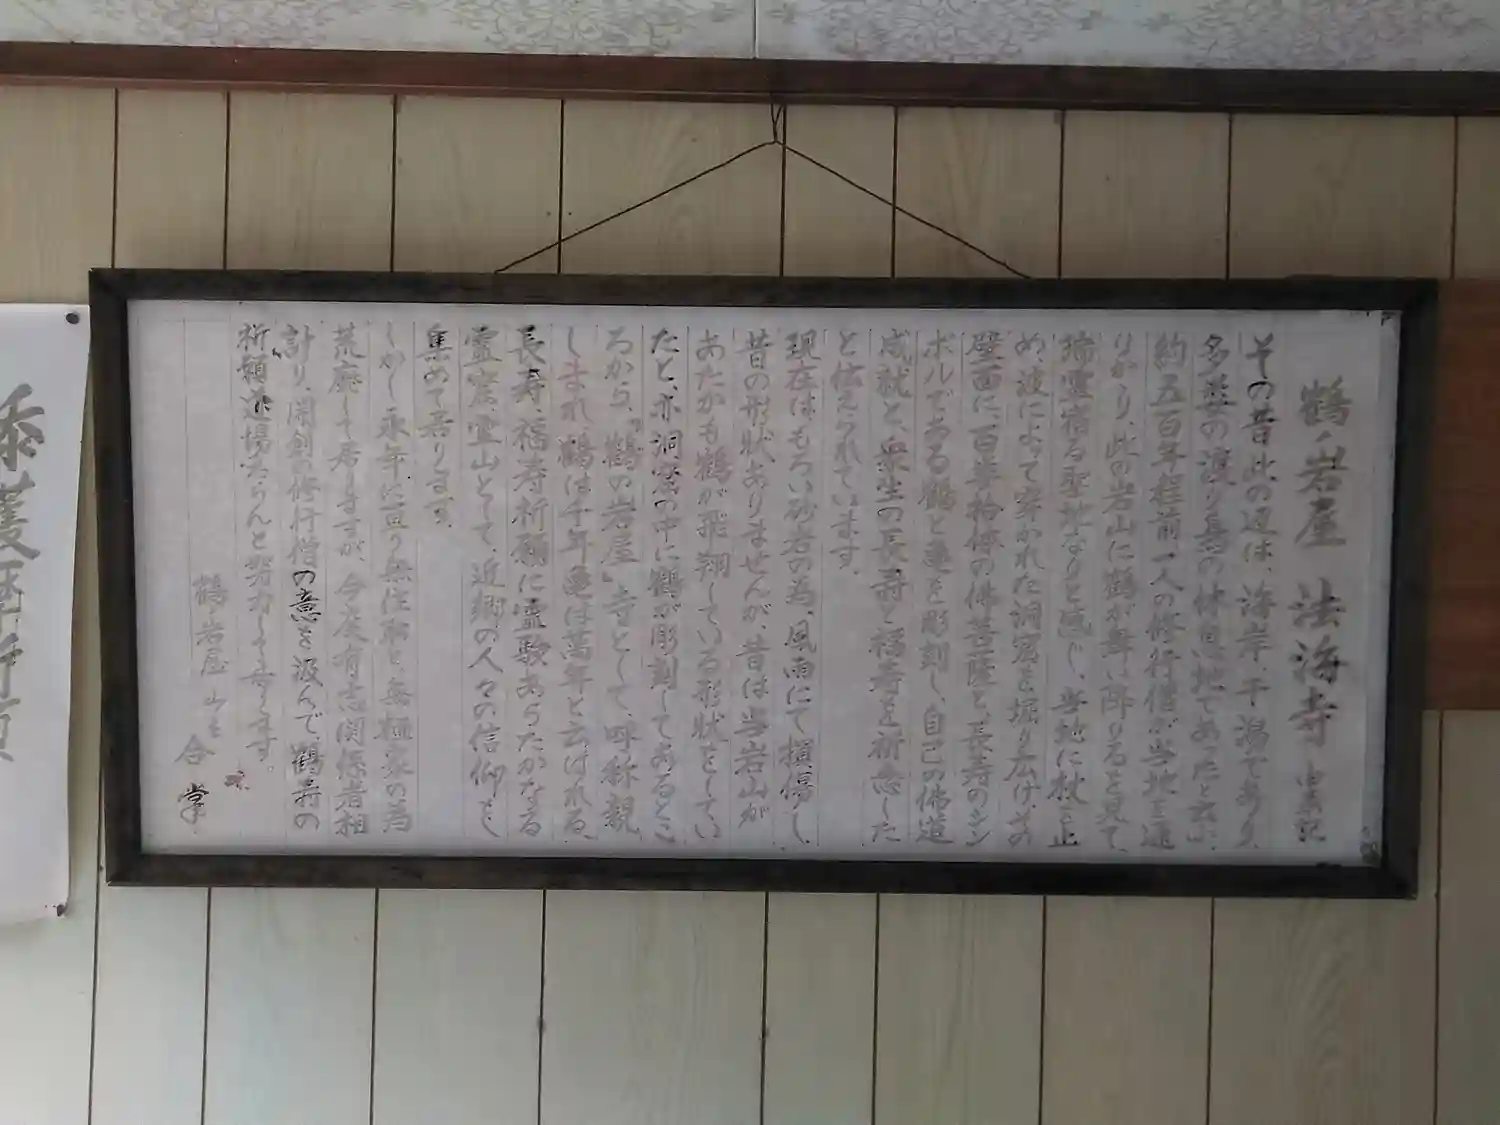 鶴ノ岩屋 法海寺 由来記
その昔此の辺は、海岸、干潟であり、
多葉の渡り鳥の休息地であったと云い、
約五百年程前一人の修行僧が当地を通
りかゝり、此の岩山に鶴が舞い降りるを見て、
瑞霊宿る聖地なりと感じ、当地に杖を止
め、波によって穿かれた洞窟を堀り広げ、その
壁面に、百五拾体の佛菩薩と、長寿のシン
ボルである鶴と亀を彫刻し、自己の佛道
成就と、衆生の長寿と福寿を祈念した
と伝えられています。
現在はもろい砂岩の為、風雨にて損傷し、
昔の形状ありませんが、昔は当岩山が
あたかも鶴が飛翔している形状をしてい
たと、亦洞窟の中に鶴が彫刻してあるとこ
ろから、『鶴の岩屋』寺として、呼称親
しまれ、鶴は千年亀は萬年と云はれる、
長寿、福寿祈願に霊験あらたかなる
霊窟、霊山として、近郷の人々の信仰をし
集めて居ります。
しかし永年に亘り無住職と無檀家の為
荒廃して居りますが、今度有志関係者相
計り、開創の修行僧の意を汲んで、鶴寿の
祈願道場たらんと努力して参ります。
鶴ノ岩屋 山主
合掌